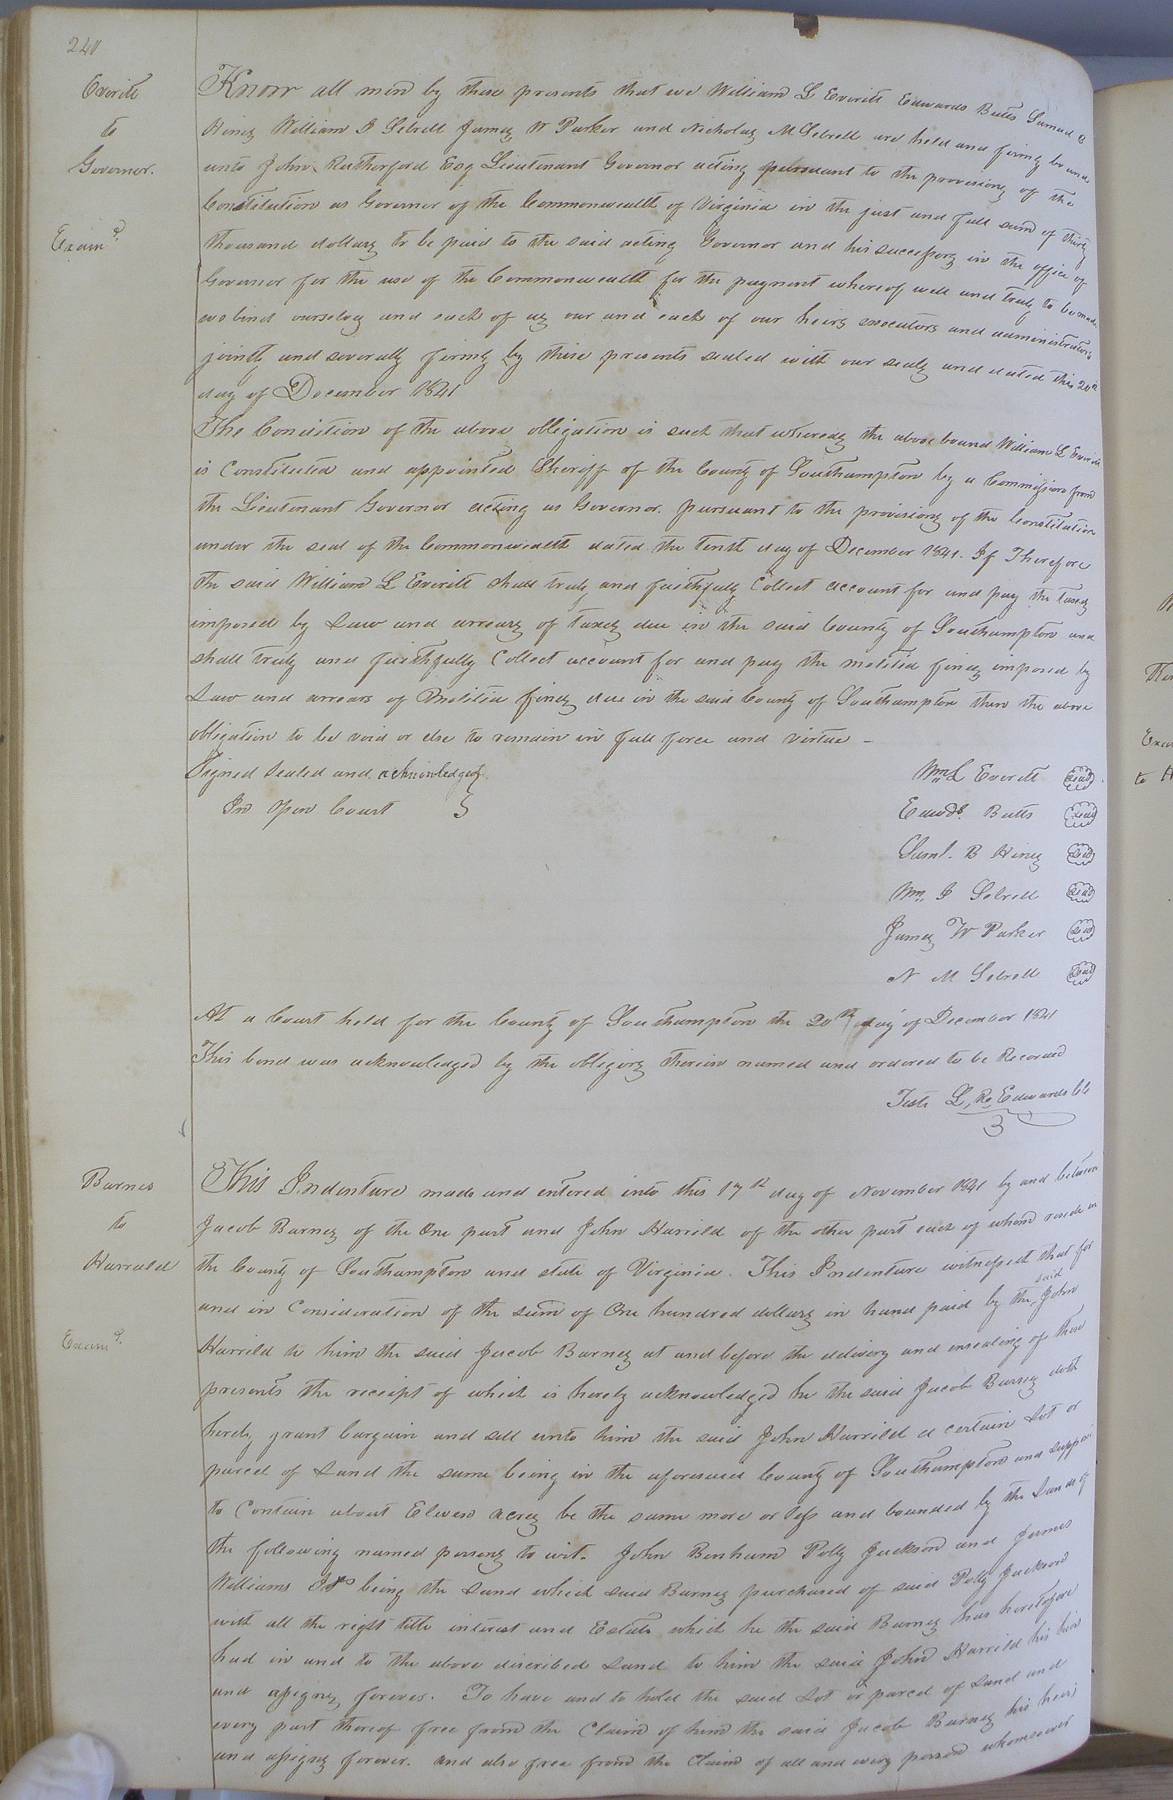 240
Everitt
to
Governor.
Exam.d
Know all men by these presents that we William L Everitt Edwards Butts Samuel B
Hines William J Sebrell James W Parker and Nicholas M Sebrell are held and firmly bound
unto John Rutherford Esq Lieutenant Governor acting pursuant to the provisions of the
Constitution as Governor of the Commonwealth of Virginia in the just and full sum of thirty
thousand dollars to be paid to the said acting Governor and his successors in the office of
Governor for the use of the Commonwealth for the payment whereof well and truly to be made
we bind ourselves and each of us our and each of our heirs executors and administrators
jointly and severally firmly by these presents sealed with our seals and dated this 20th
day of December 1841
The Condition of the above obligation is such that whereas the above bound William L Everitt
is Constituted and appointed Sheriff of the County of Southampton by a Commission from
the Lieutenant Governor acting as Governor. pursuant to the provisions of the Constitution
under the seal of the Commonwealth dated the tenth day of December 1841. If Therefore
the said William L Everitt shall truly and faithfully Collect account for and pay the taxes
imposed by Law and arrears of taxes due in the said County of Southampton and
shall truly and faithfully Collect account for and pay the melitia fines imposed by
Law and arrears of Melitia fines due in the said County of Southampton then the above
obligation to be void or else to remain in full force and virtue -
Signed Sealed and acknowledged
In Open Court
Wm L Everitt seal
Edwds. Butts seal
Saml. B Hines seal
Wm J Sebrell seal
James W Parker seal
N M Sebrell seal
At a Court held for the County of Southampton the 20th day of December 1841
This bond was acknowledged by the obligors therein named and ordered to be Recorded
Teste L. R. Edwards Clk
Barnes
to
Harrald
Exam.d
This Indenture made and entered into this 17th day of November 1841 by and between
Jacob Barnes of the One part and John Harrild of the other part each of whom reside in
the County of Southampton and state of Virginia. This Indenture witnesseth that for
and in Consideration of the sum of One hundred dollars in hand paid by the said John
Harrild to him the said Jacob Barnes at and before the delivery and ensealing of these
presents the receipt of which is hereby acknowledged he the said Jacob Barnes doth
hereby grant bargain and sell unto him the said John Harrild a certain Lot or
parcel of Land the same being in the aforesaid County of Southampton and
to Contain about Eleven acres be the same more or less and bounded by the Lands of
the following named persons to wit. John Bonham Polly Jackson and James
Williams being the Land which said Barnes purchased of said Polly Jackson
with all the right title interest and Estate which he the said Barnes has heretofore
had in and to the above discribed Land to him the said John Harrild his heirs
and assigns forever. To have and to hold the said Lot or parcel of Land and
every part thereof free from the Claim of him the said Jacob Barnes his heirs
and assigns forever. and also free from the Claim of all and every person whomsoever